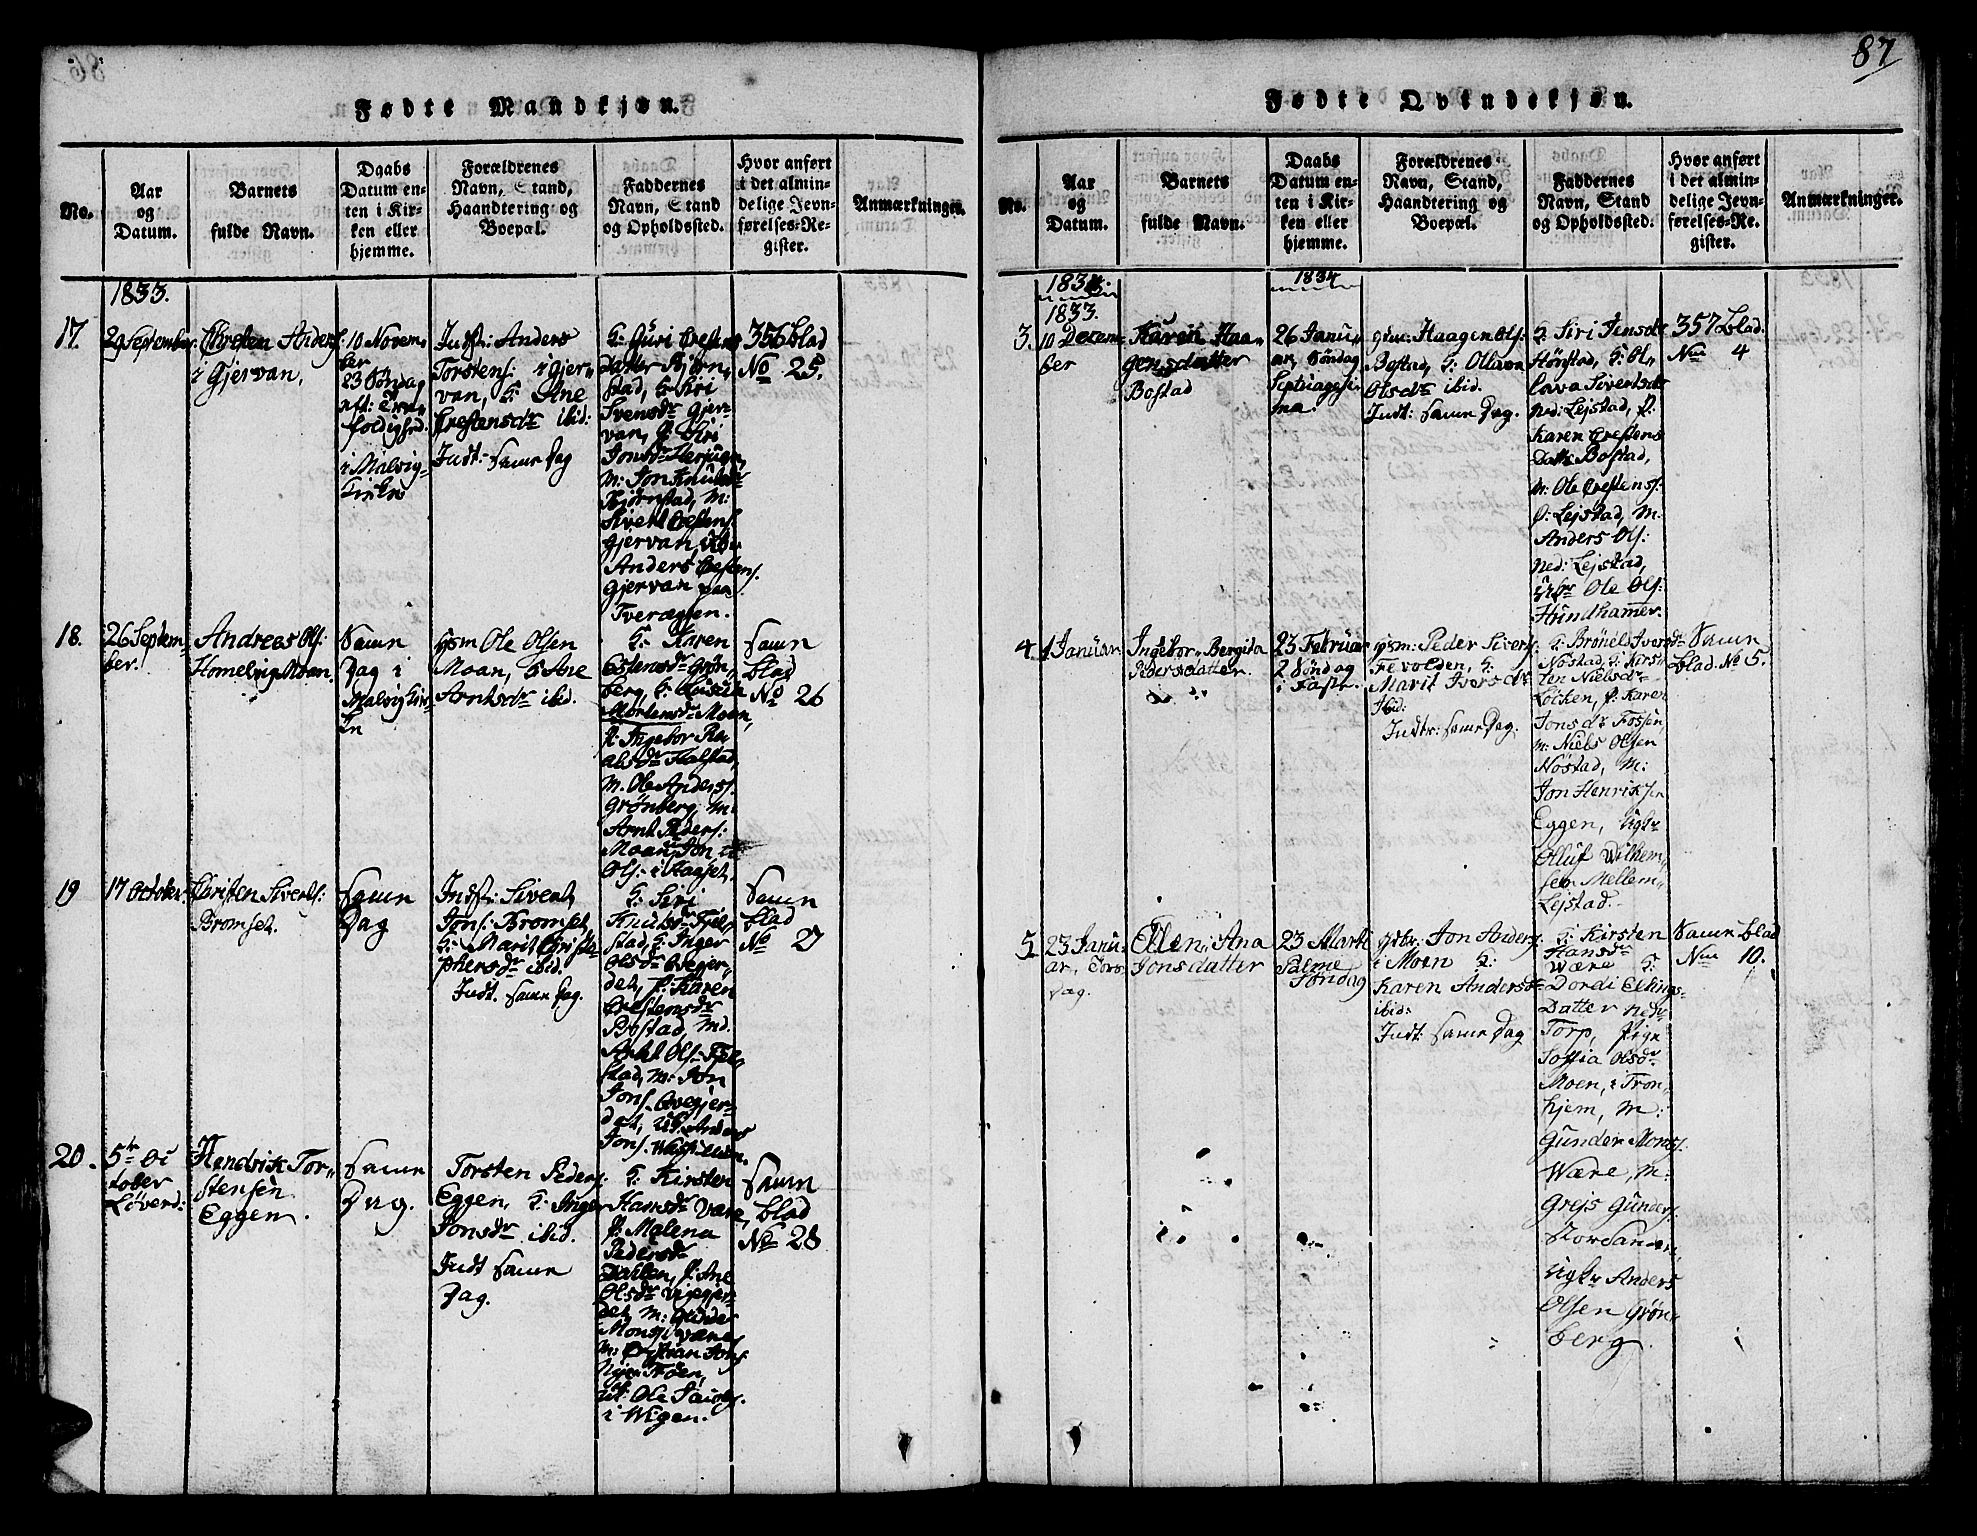 87
Fødte Mandkjøn.
No.
Aar
og
Datum.
Barnets
fulde Navn.
Daabs
Datum en-
ten i Kir-
ken eller
hjemme.
Forældrenes
Navn, Stand,
Haandtering og
Boepæl.
Faddernes
Navn, Stand
og Opholdssted.
Hvor anført
i det almin-
delige Jevn-
førelses-Re-
gister.
Anmærkninger.
1833.
17.
29 September
Christen Anders:
i Gjervan,
10 Novem-
ber
23 Søndag
Aft: Tre-
foldighed:
i Malvig-
Kirke
Indst: Anders
Torstens: i Gjer-
van, K: Ane
Crestensdr ibid:
Indt: samme Dag
K: Guri Crestens
Datter Bjørn-
stad, K: Siri
Svensdr Gjer-
van, P: Siri
Jonsdr
m: Jon Knuds
Bjørnstad, m:
Sivert Crestens:
Gjervan,
Anders Crestens.
Gjervan
Tveræggen.
356 blad
No 25.
18.
26 Septem-
ber.
Andreas Ols:
Homelvig Moan.
Samme
Dag i
Malvig Kir-
ke
Ole Olsen
Moan, K Ane
Arntsdr ibid.
K: Karen
Estensdr Grøn-
berg, K:
Mortensdr Moan,
P: Ingebor
Halstad,
m. Ole Anders.
Grønberg, m.
Arnt Peders:
Moan, Jon
Ols: i Hagset,
Samme
blad
No 26
19
17 October.
Christen Siverts:
Bromset.
Samme
Dag
Indst: Sivert
Jons: Bromset,
K: Marit Christo-
phersdr ibid.
Indt. samme Dag.
K: Siri
Knudsdr Fjel-
stad, K: Inger
Olsdr
det, P: Karen
Crestensdr
Bostad, md.
Arnt Ols: Fjel-
stad, m: Jon
Jons.
det, Anders
Jons.
Samme
blad
No 27
20.
5te Oc
tober
Løverd:
Hendrik Tor-
stensen
Eggen.
Samme
Dag.
Torsten Peders:
Eggen, K: Inger
Jonsdr ibid.
Indt samme
Dag.
K: Kirsten
Hansdr Være,
P: Malena
Pedersdr
Dahlen, P: Ane
Olsdr
det, m:
Mons: Være
m: Jons.
Ole
i Wigen.
Samme
blad
No 28
Fødte Qvindekjøn.
No.
Aar
og
Datum.
Barnets
fulde Navn.
Daabs
Datum en-
ten i Kir-
ken eller
hjemme.
Forældrenes
Navn, Stand,
Haandtering og
Boepæl.
Faddernes
Navn, Stand
og Opholdssted.
Hvor anført
i det almin-
delige Jevn-
førelses-Re-
gister.
Anmærkninger.
1834.
1833.
1834
3.
10 Decem-
ber
Karen Haa-
gensdatter
Bostad
26 Janu-
ar, Søndag
Septuagesi-
ma.
Haagen Ols:
Bostad, K: Oliana
Olsdr ibid.
Indt: samme Dag.
K: Siri Jensdr
Hønstad, K: Ol-
Sivertsdr
ned: Lejstad, P:
Karen Crestens
Datter Bostad,
m: Ole Crestens:
Ø: Lejstad, m.
Anders Ols:
ned: Lejstad,
Ole Ols:
Hundhamer.
357 blad.
No 4
4.
1 Januar
Ingebor Bergita
Pedersdatter.
23 Februar
2 Søndag
i Faste.
Peder Sivers:
Fevolden, K:
Marit Iversdr
ibid:
Indtr: samme Dag.
K: Brønel Iversdr
Nostad, K: Kirs-
ten Nielsdr
Løcken, P: Karen
Jonsdr Fossen,
m: Niels Olsen
Nostad, m:
Jon Henriksen
Eggen, Ugkr
Oluf Wilhem-
sen Mellem-
Lejstad.
Samme
blad. No 5.
5.
23 Janu-
ar, Tors-
dag.
Ellen Ana
Jonsdatter
23 Marti
Palme
Søndag
Jon Anders:
i Moen K:
Karen Andersdr
ibid:
Indt: samme Dag
K: Kirsten
Hansdr
Være K:
Dordi Ellings-
Datter nedr
Torp, Pige
Soffia Olsdr
Moen, i Tron-
hjem, m:
Gunder Mons.
Være, m:
Grejs Gunders.
Storsanen,
Ugkr Anders
Olsen Grøn-
berg.
Samme blad
No 10.